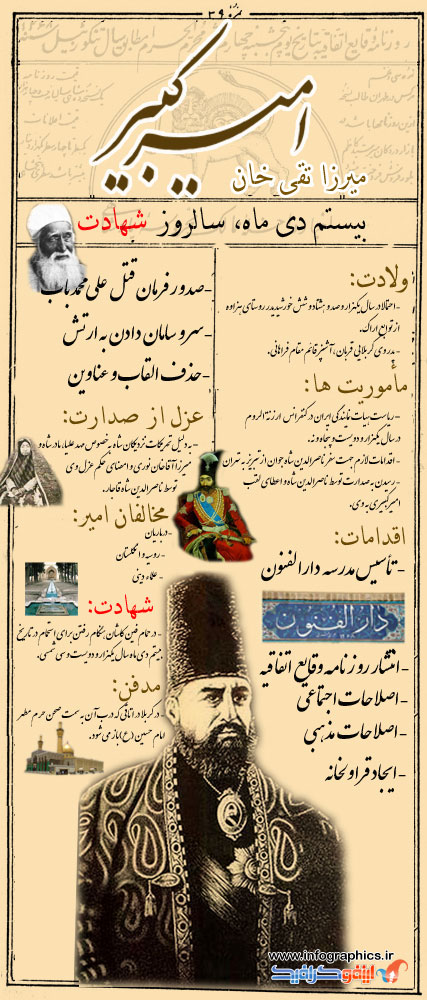 نمره ۳۹
امیر کبیر
میرزا تقی خان
بیستم دی ماه، سالروز شهادت
ولادت:
- احتمالا در سال یکهزار و صد و هشتاد و شش خورشیدی در روستای هزاوه
از توابع اراک.
- پدر وی کربلایی قربان، آشپز قائم مقام فراهانی.
مأموریت ها:
- ریاست هیات نمایندگی ایران در کنفرانس ارزنة الروم
در سال یکهزار و دویست و پنجاه و نه.
- اقدامات لازم جهت سفر ناصرالدین شاه جوان از تبریز به تهران
- رسیدن به صدارت توسط ناصرالدین شاه و اعطای لقب
امیرکبیری به وی.
اقدامات:
- تأسیس مدرسه دارالفنون
دارالفنون
- انتشار روزنامه وقایع اتفاقیه
- اصلاحات اجتماعی
- اصلاحات مذهبی
- ایجاد قراولخانه
- صدور فرمان قتل علی محمد باب
- سر و سامان دادن به ارتش
- حذف القاب و عناوین
عزل از صدارت:
- به دلیل تحریکات نزدیکان شاه به خصوص مهد علیا، مادر شاه و
میرزا آقاخان نوری و امضای حکم عزل وی
توسط ناصرالدین شاه قاجار.
مخالفان امیر:
- درباریان
- روسیه و انگلستان
- علماء دینی
شهادت:
- در حمام فین کاشان، هنگام رفتن برای استحمام در تاریخ
بیستم دی ماه سال یکهزار و دویست و سی شمسی.
مدفن:
- در کربلا در اتاقی که درب آن به سمت صحن حرم مطهر
امام حسین (ع) باز می شود.
www.infographics.ir
اینفوگرافیک